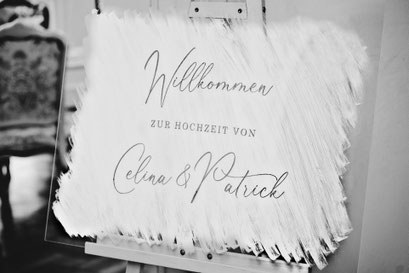 Willkommen
ZUR HOCHZEIT VON
Celina & Patrick